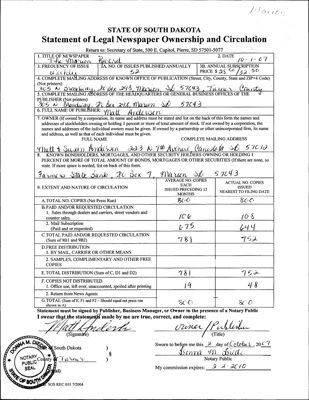 STATE OF SOUTH DAKOTA
Statement of Legal Newspaper Ownership and Circulation
Return to: Secretary of State, 500 E. Capitol, Pierre, SD 57501-5077
1. TITLE OF NEWSPAPER
The Marion Record
2. DATE
10-1-07
3. FREQUENCY OF ISSUE
Weekly
3A. NO. OF ISSUES PUBLISHED ANNUALLY
52
3B. ANNUAL SUBSCRIPTION
PRICE
4. COMPLETE MAILING ADDRESS OF KNOWN OFFICE OF PUBLICATION (Street, City, County, State and ZIP+4 Code)
(Not printers)
305 N Broadway, Po Box 298, Marion Sd 57043
5. COMPLETE MAILING ADDRESS OF THE HEADQUARTERS OF GENERAL BUSINESS OFFICES OF THE
PUBLISHER (Not printers)
305 N Broadway, Po Box 298 Marion Sd 57043
6. FULL NAME OF PUBLISHER:
Matt Anderson
7. OWNER (If owned by a corporation, its name and address must be stated and also immediately
FULL NAME
COMPLETE MAILING ADDRESS
Matt &
8. KNOWN BONDHOLDERS, MORTGAGEES, AND OTHER SECURITY HOLDERS OWNING OR HOLDING 1
PERCENT OR MORE OF TOTAL AMOUNT OF BONDS, MORTGAGES OR OTHER SECURITIES (If there are none, so
state. If more space is needed, list on back of this form.
Farmers State Bank, Po Box 7, Marion Sd 57043
9. EXTENT AND NATURE OF CIRCULATION
AVERAGE NO. COPIES
EACH
ISSUED PRECEDING 12
MONTHS
ACTUAL NO. COPIES
ISSUED
NEAREST TO FILING DATE
A. TOTAL NO. COPIES (Net Press Run)
800
800
B. PAID AND/OR REQUESTED CIRCULATION
1. Sales through dealers and carriers, street vendors and
counter sales.
106
108
2. Mail Subscription
(Paid and or requested)
675
644
C. TOTAL PAID AND/OR REQUESTED CIRCULATION
(Sum of 9B1 and 9B2)
781
752
D. FREE DISTRIBUTION
1. BY MAIL, CARRIER OR OTHER MEANS
2. SAMPLES, COMPLIMENTARY AND OTHER FREE
COPIES
E. TOTAL DISTRIBUTION (Sum of C, D1 and D2)
781
752
F. COPIES NOT DISTRIBUTED
1. Office use, left over, unaccounted, spoiled after printing
19
48
2. Return from News Agents
G. TOTAL (Sum of E, F1 and F2 - Should equal net press run
shown in A)
800
800
Statement must be signed by Publisher, Business Manager, or Owner in the presence of a Notary Public
I swear that the statements made by me are true, correct, and complete:
Matt Anderson
(Signature)
Owner / Publisher
(Title)
State of South Dakota )
County of Turner )
Sworn to before me this 2 day of October, 2007
Notary Public
My commission expires: 2 2 2010
NOTARY
PUBLIC
SEAL
SOS REC 031 7/2004